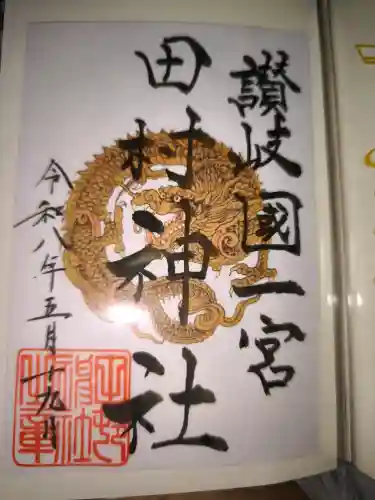 讃岐國一宮
田村神社
令和八年五月十九日